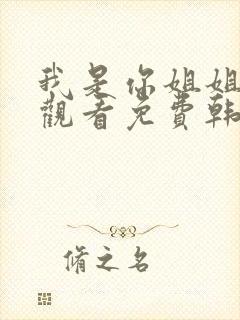 我是你姐姐
觀看免費韓
脩之名